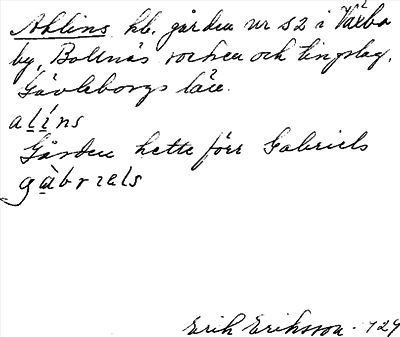 Ahlins hb. gården nr 52 i Växbo
by, Bollnäs socken och tingslag,
Gävleborgs län.
alíns
Gården hette förr Gabriels
gàbriels
Erik Eriksson. 1929